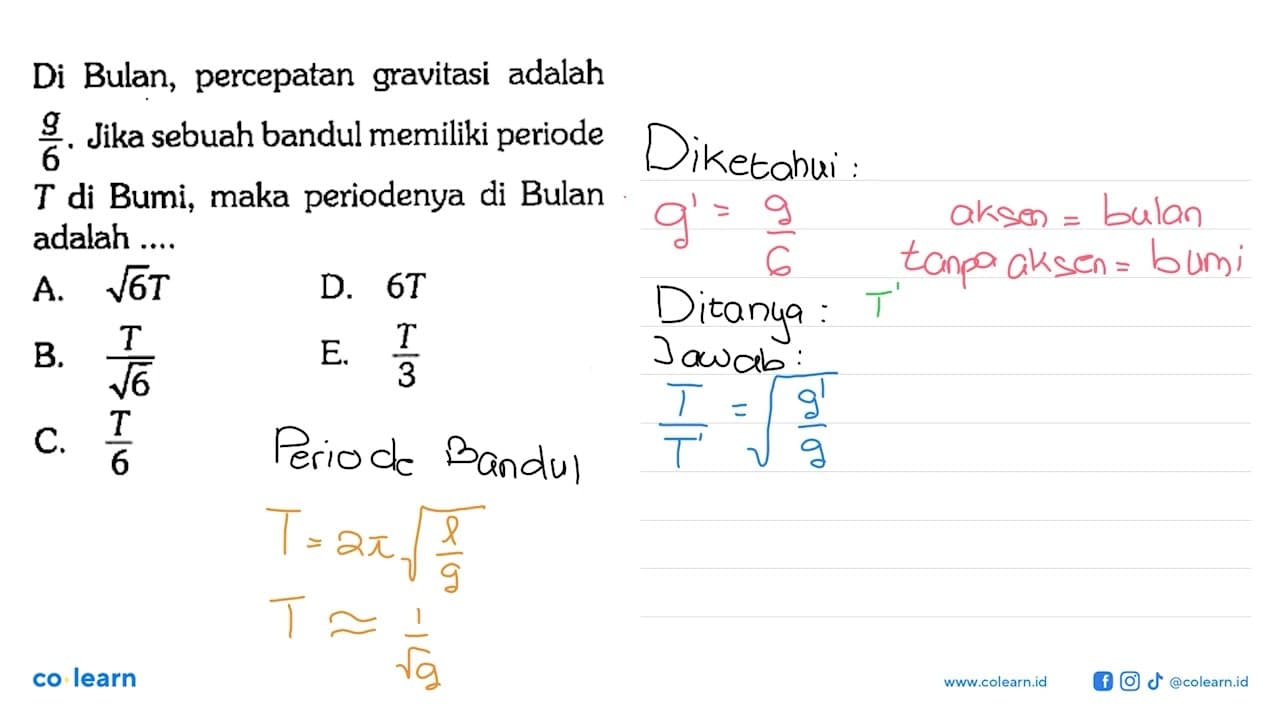 Di Bulan, percepatan gravitasi adalah
g/6. Jika sebuah bandul memiliki periode
T di Bumi, maka periodenya di Bulan
adalah ....
A. √6T
B. T/√6
C. T/6
D. 6T
E. T/3
Periode Bandul
T = 2π√(l/g)
T ≈ 1/√g
Diketahui :
g' = g/6
aksen = bulan
tanpa aksen = bumi
Ditanya : T'
Jawab :
T/T' = √(g'/g)
co learn
www.colearn.id
@colearn.id